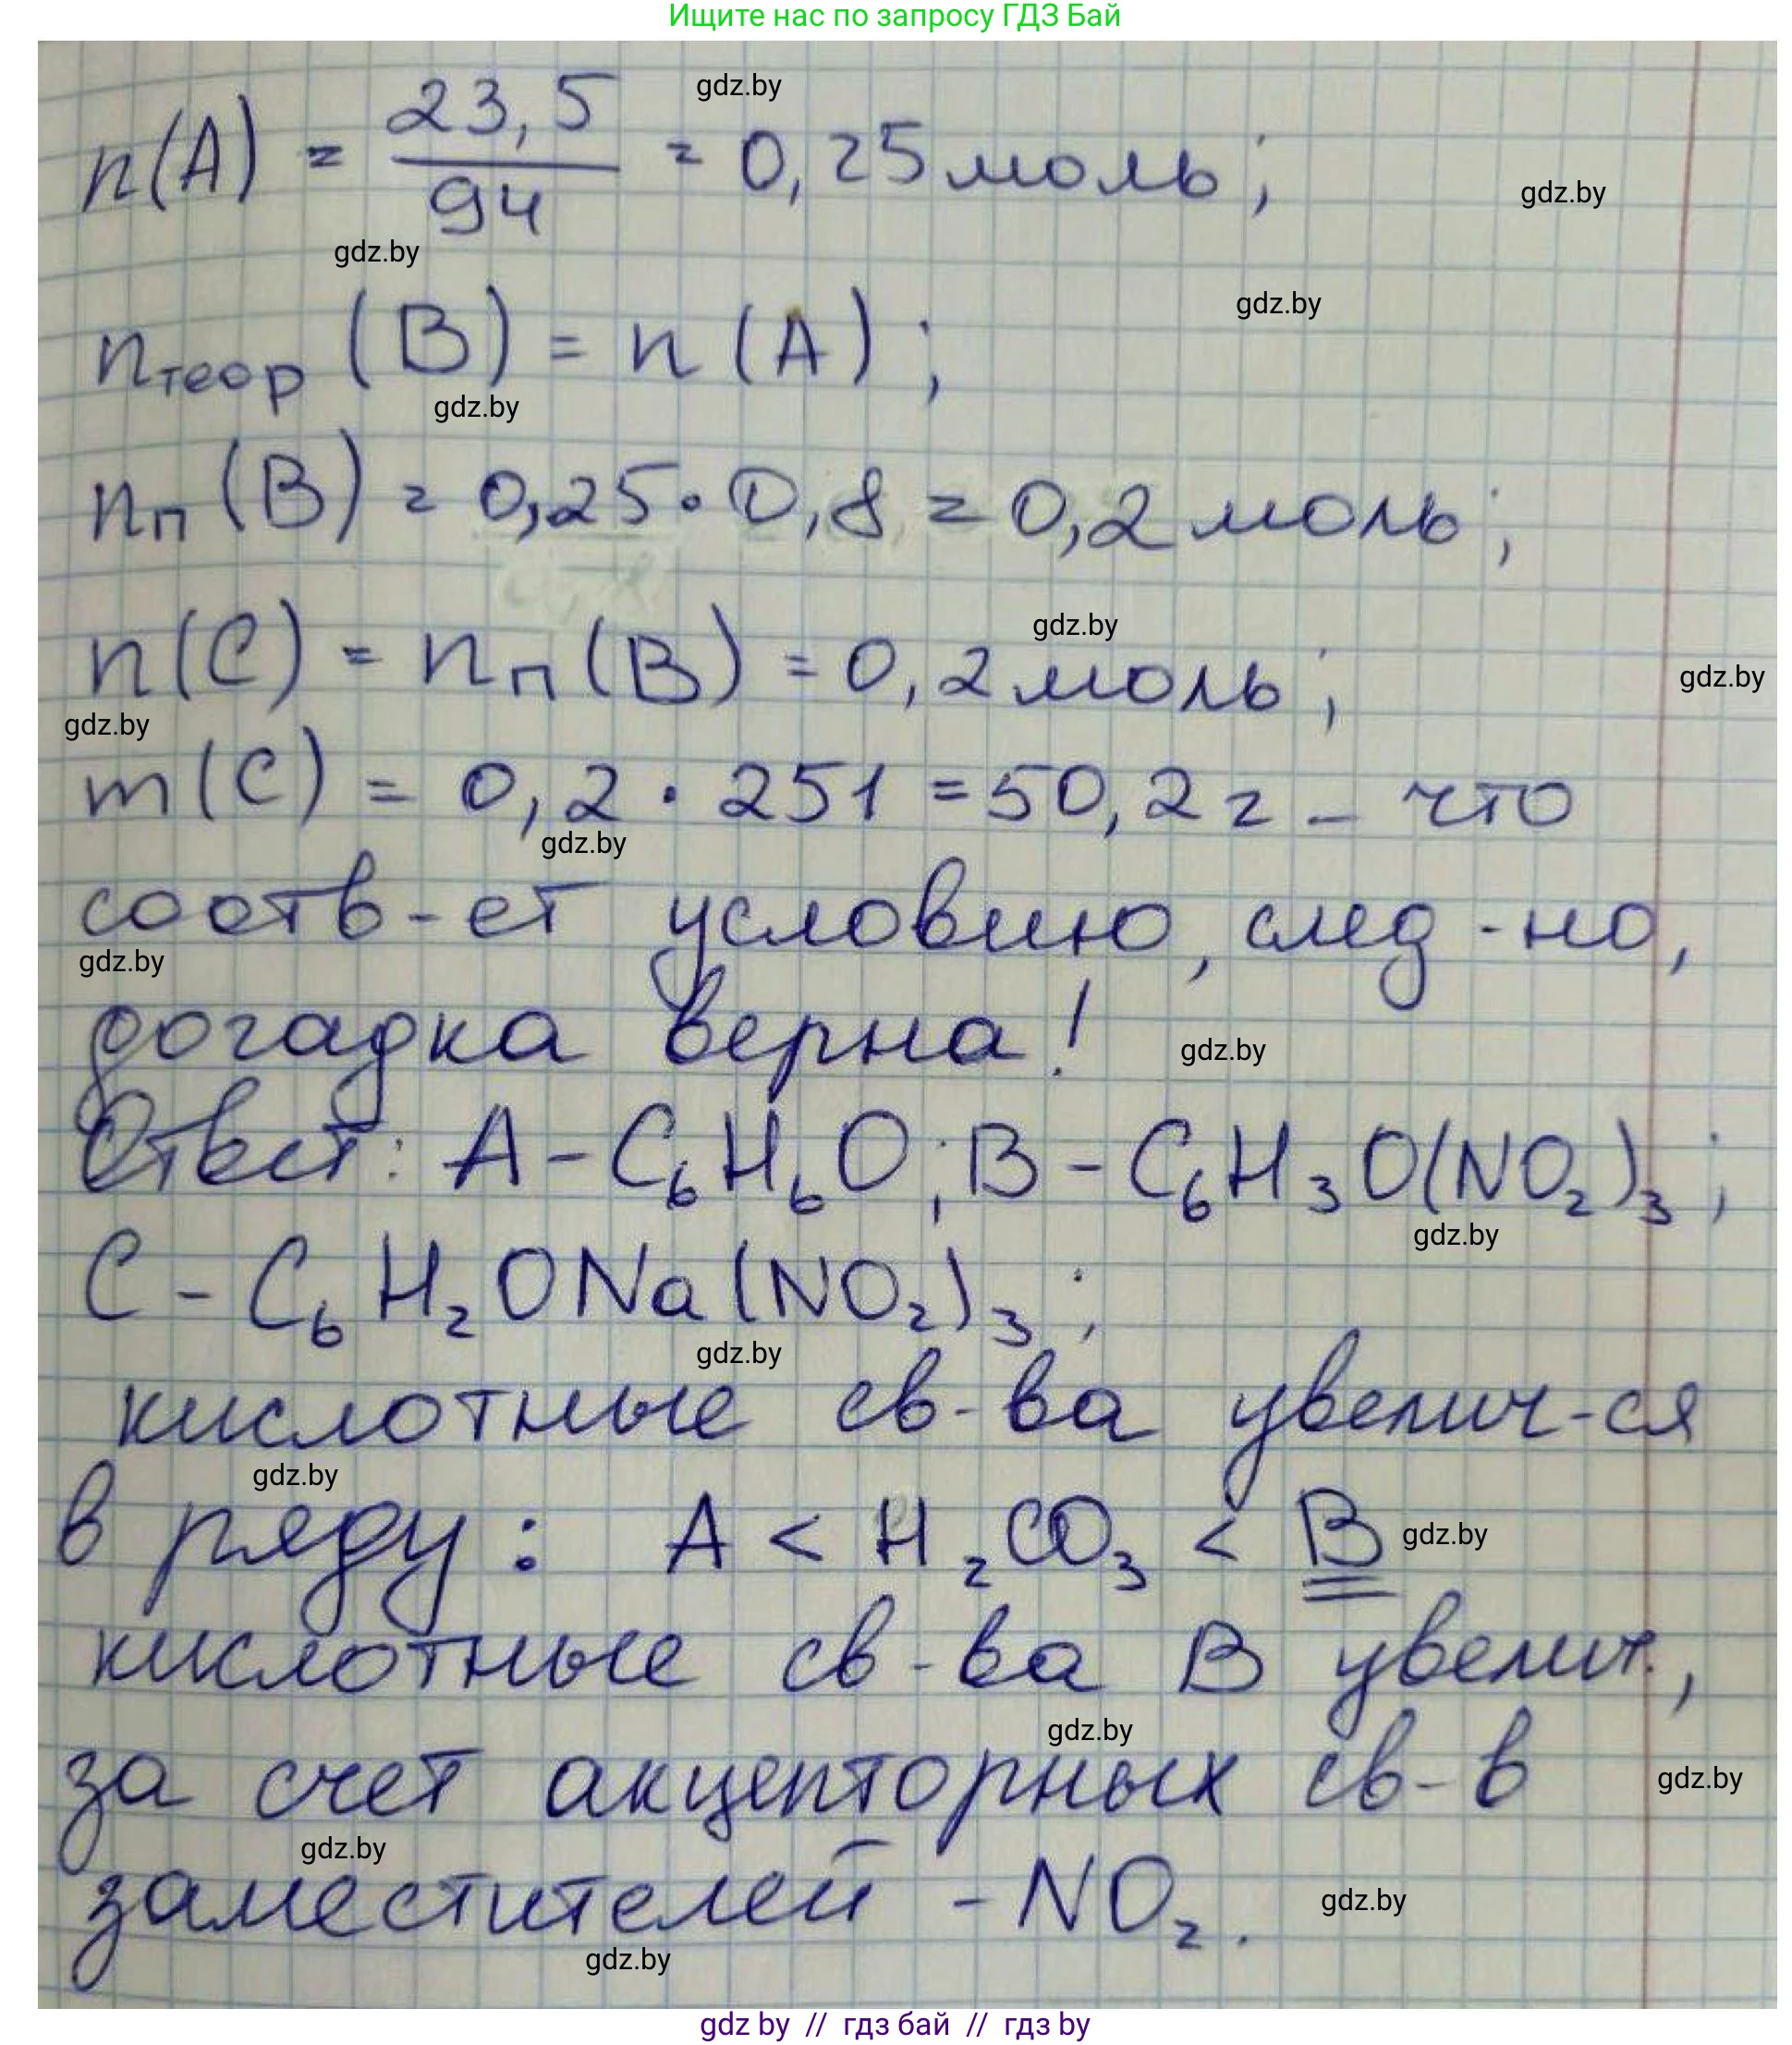 Ищите нас по запросу ГДЗ Бай
gdz.by
n(A) = 23,5/94 = 0,25 моль;
gdz.by
gdz.by
gdz.by
nтеор (B) = n (A);
gdz.by
nп (B) = 0,25 · 0,8 = 0,2 моль;
gdz.by
n(C) = nп (B) = 0,2 моль;
gdz.by
gdz.by
m(C) = 0,2 · 251 = 50,2 г – что
gdz.by
соотв-ет условию, след-но,
gdz.by
догадка верна!
gdz.by
Ответ: A – C₆H₆O; B – C₆H₃O(NO₂)₃;
gdz.by
C – C₆H₂ONa(NO₂)₃;
gdz.by
кислотные св-ва увелич-ся
gdz.by
в ряду: A < H₂CO₃ < B
gdz.by
кислотные св-ва B увелич.,
gdz.by
за счет акцепторных св-в
gdz.by
gdz.by
заместителей – NO₂.
gdz.by
gdz.by
gdz by // гдз бай // гдз by